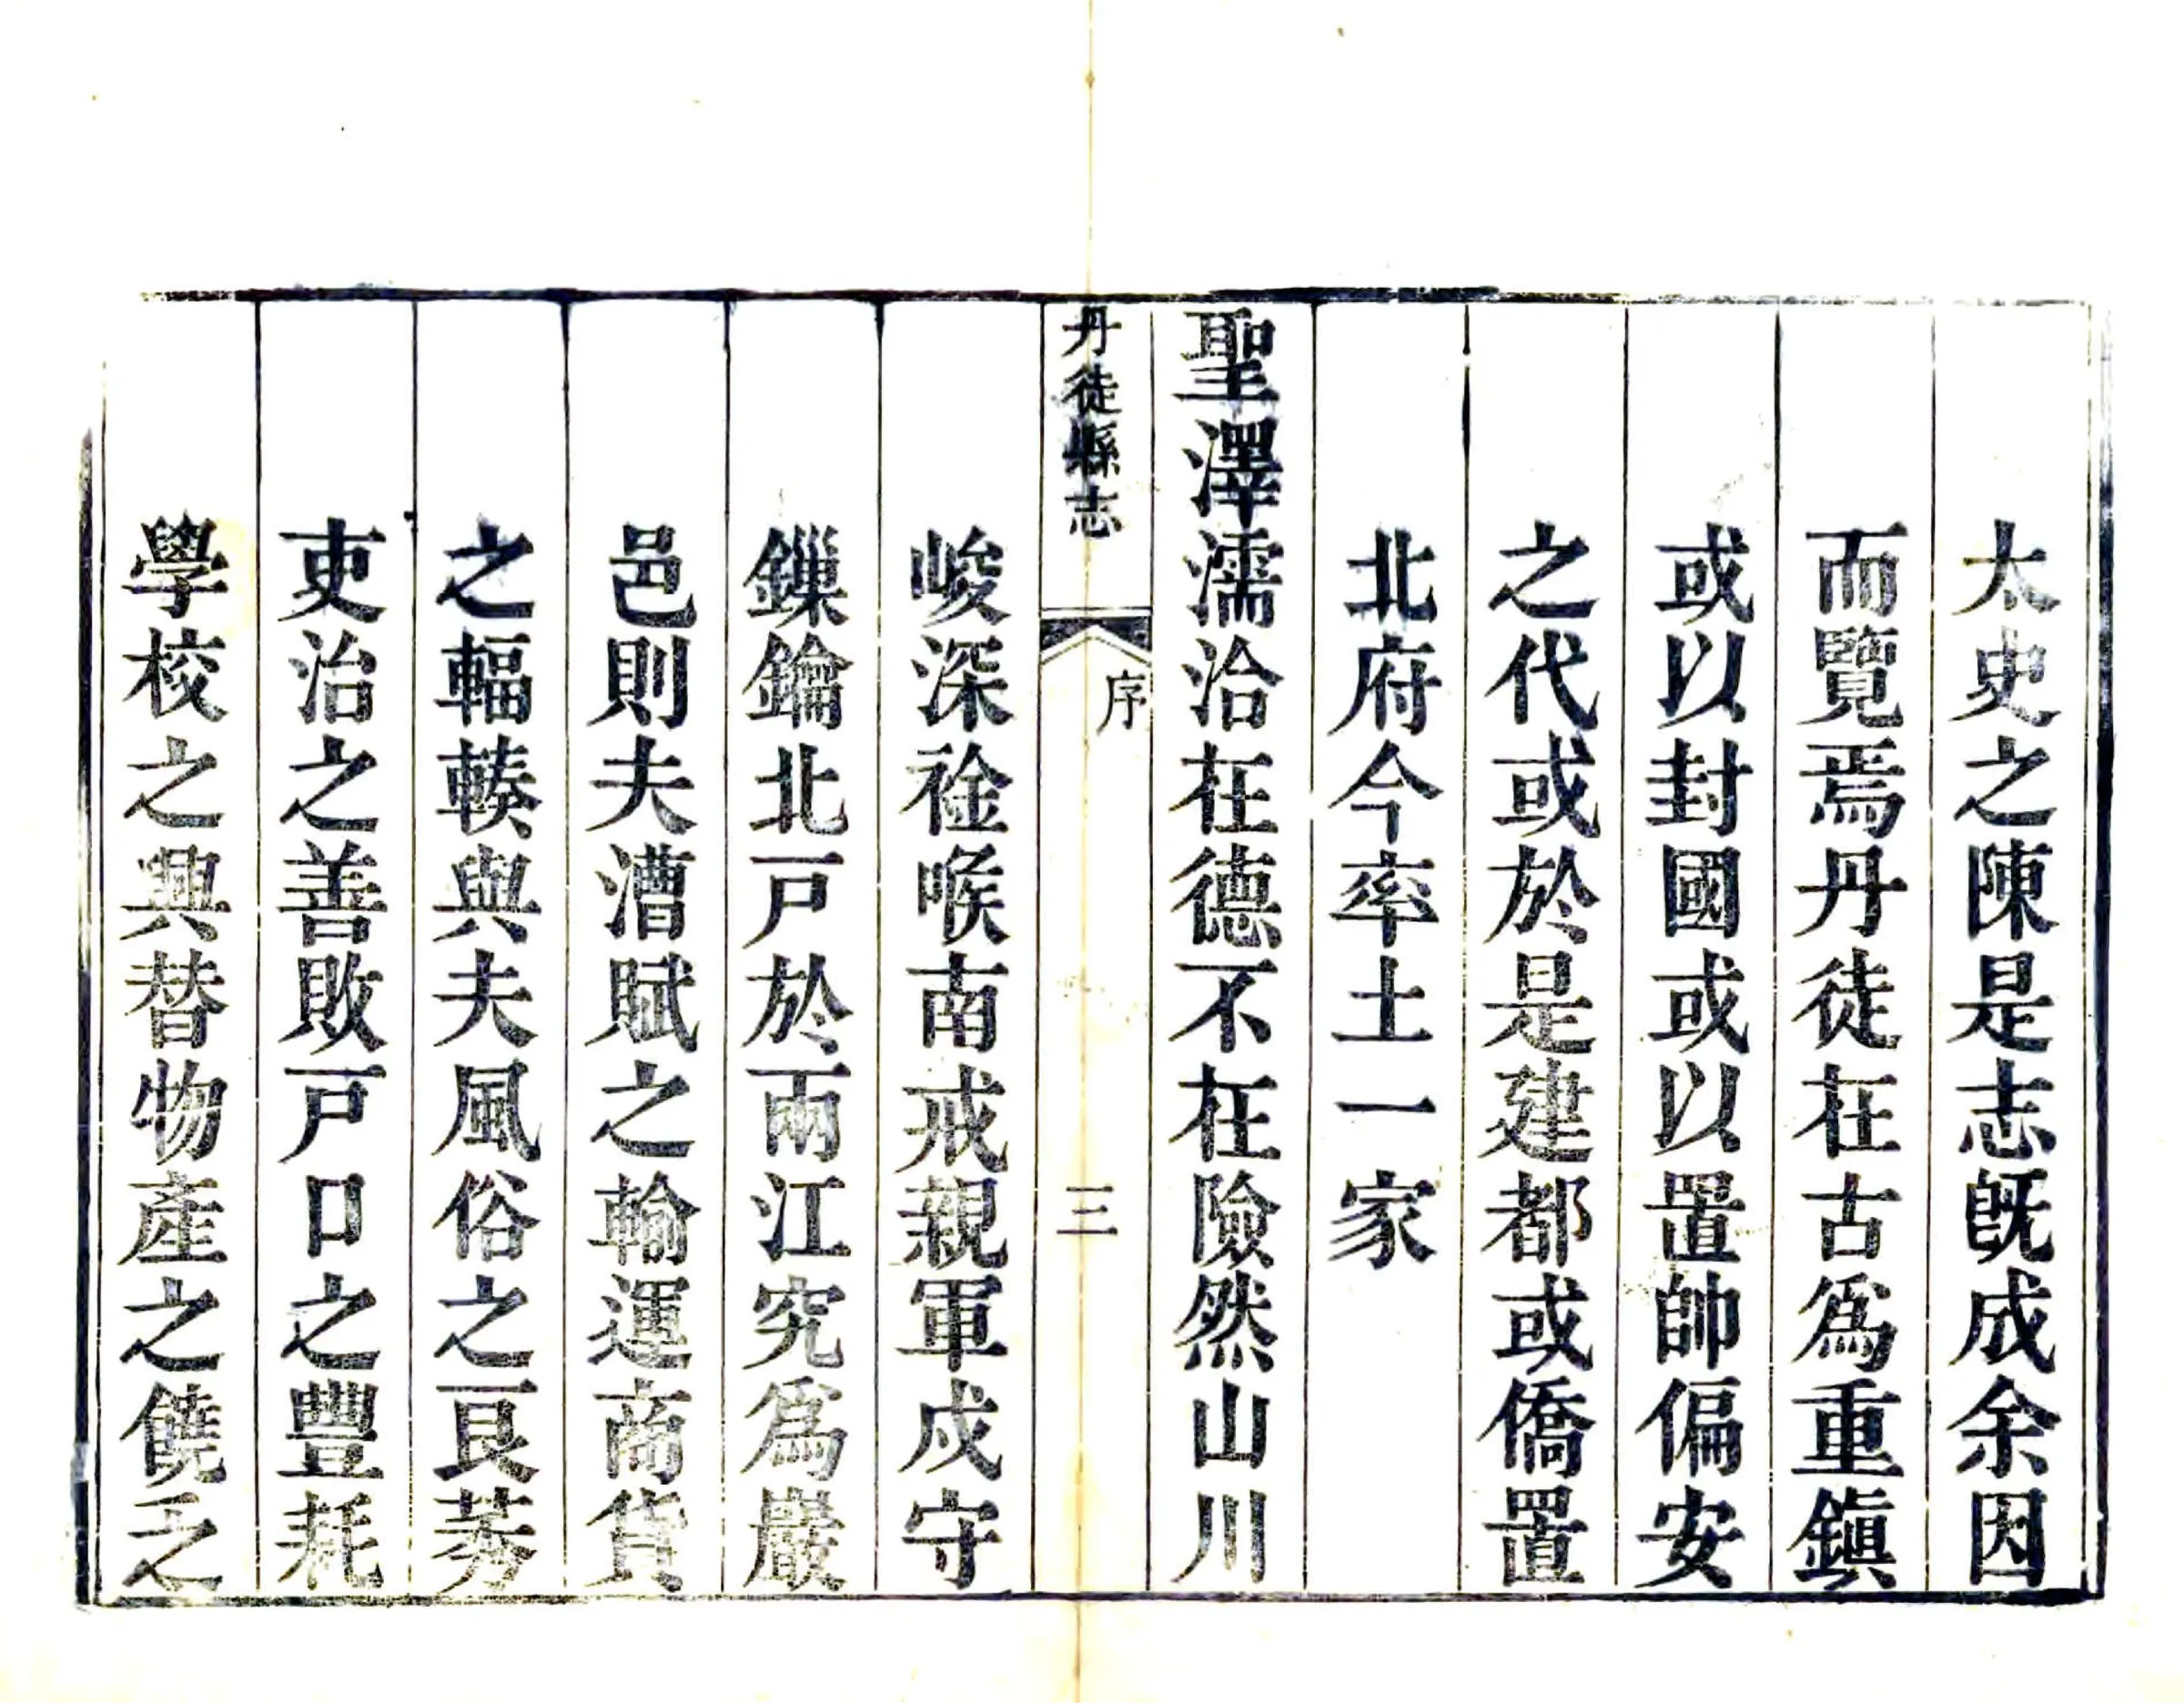 太史之陳是志旣成余因
而覽焉丹徒在古爲重鎭
或以封國或以置帥偏安
之代或於是建都或僑置
北府今率土一家
聖澤濡洽在德不在險然山川
丹徒縣志
序
三
峻深襟喉南戒親軍戍守
鏁鑰北戸於兩江究爲巖
邑則夫漕賦之輸運商貨
之輻輳與夫風俗之艮莠
吏治之善敗戸口之豐耗
學校之興替物產之饒乏